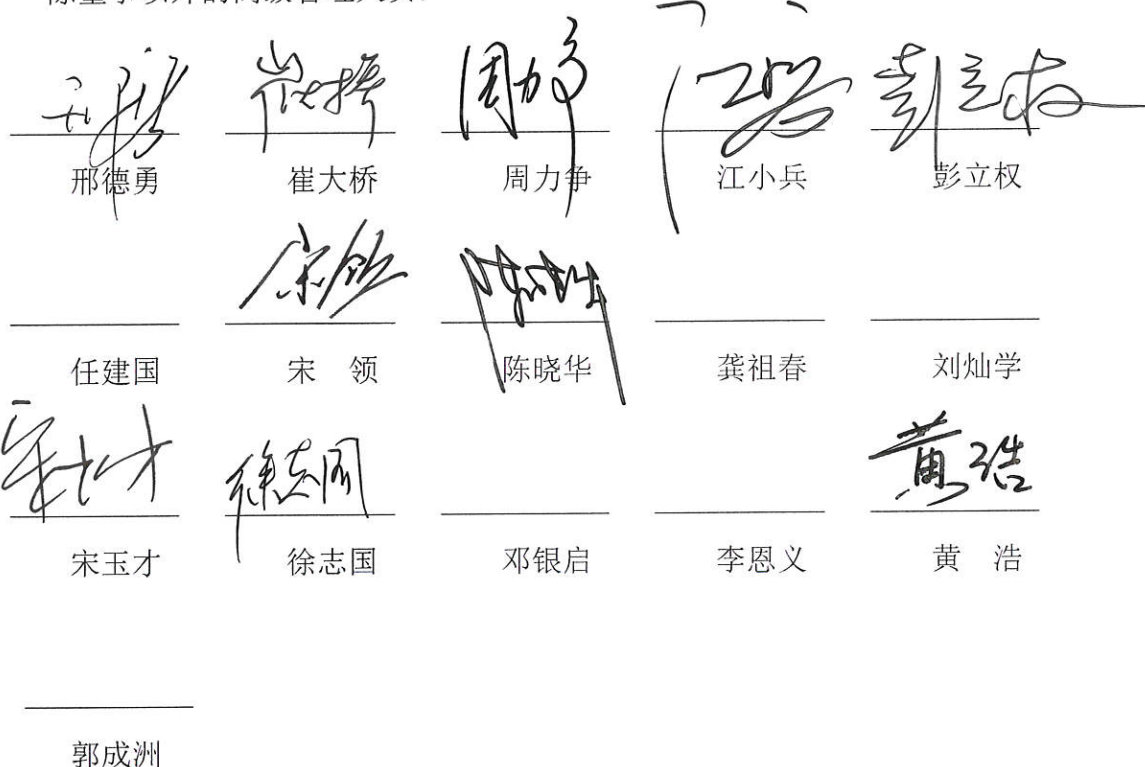 邢德勇 崔大桥 周力争 江小兵 彭立权
宋领
任建国 宋 领 陈晓华 龚祖春 刘灿学
徐志国 黄浩
宋玉才 徐志国 邓银启 李恩义 黄 浩
郭成洲